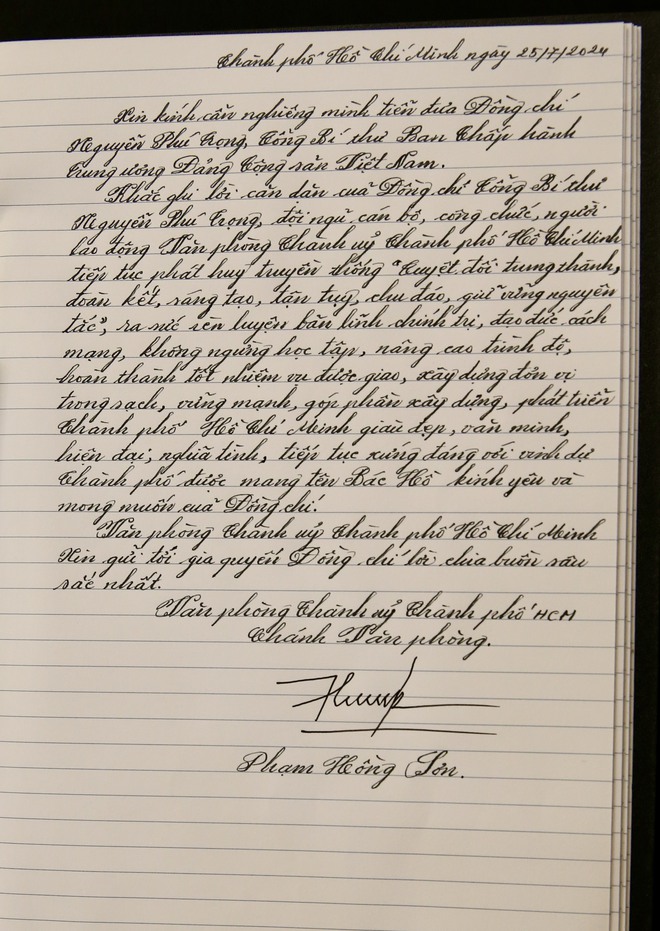 Thành phố Hồ Chí Minh ngày 25/7/2024
Xin kính cẩn nghiêng mình tiễn đưa Đồng chí
Nguyễn Phú Trọng, Tổng Bí thư Ban Chấp hành
Trung ương Đảng Cộng sản Việt Nam.
Khắc ghi lời căn dặn của Đồng chí Tổng Bí thư
Nguyễn Phú Trọng, đội ngũ cán bộ, công chức, người
lao động Văn phòng Thành uỷ Thành phố Hồ Chí Minh
tiếp tục phát huy truyền thống "Tuyệt đối trung thành,
đoàn kết, sáng tạo, tận tuỵ, chu đáo, giữ vững nguyên
tắc", ra sức rèn luyện bản lĩnh chính trị, đạo đức cách
mạng, không ngừng học tập, nâng cao trình độ,
hoàn thành tốt nhiệm vụ được giao, xây dựng đơn vị
trong sạch, vững mạnh, góp phần xây dựng, phát triển
Thành phố Hồ Chí Minh giàu đẹp, văn minh,
hiện đại, nghĩa tình, tiếp tục xứng đáng với vinh dự
Thành phố được mang tên Bác Hồ kính yêu và
mong muốn của Đồng chí.
Văn phòng Thành uỷ Thành phố Hồ Chí Minh
Xin gửi tới gia quyến Đồng chí lời chia buồn sâu
sắc nhất.
Văn phòng Thành uỷ Thành phố HCM
Chánh Văn phòng.
Phạm Hồng Sơn.